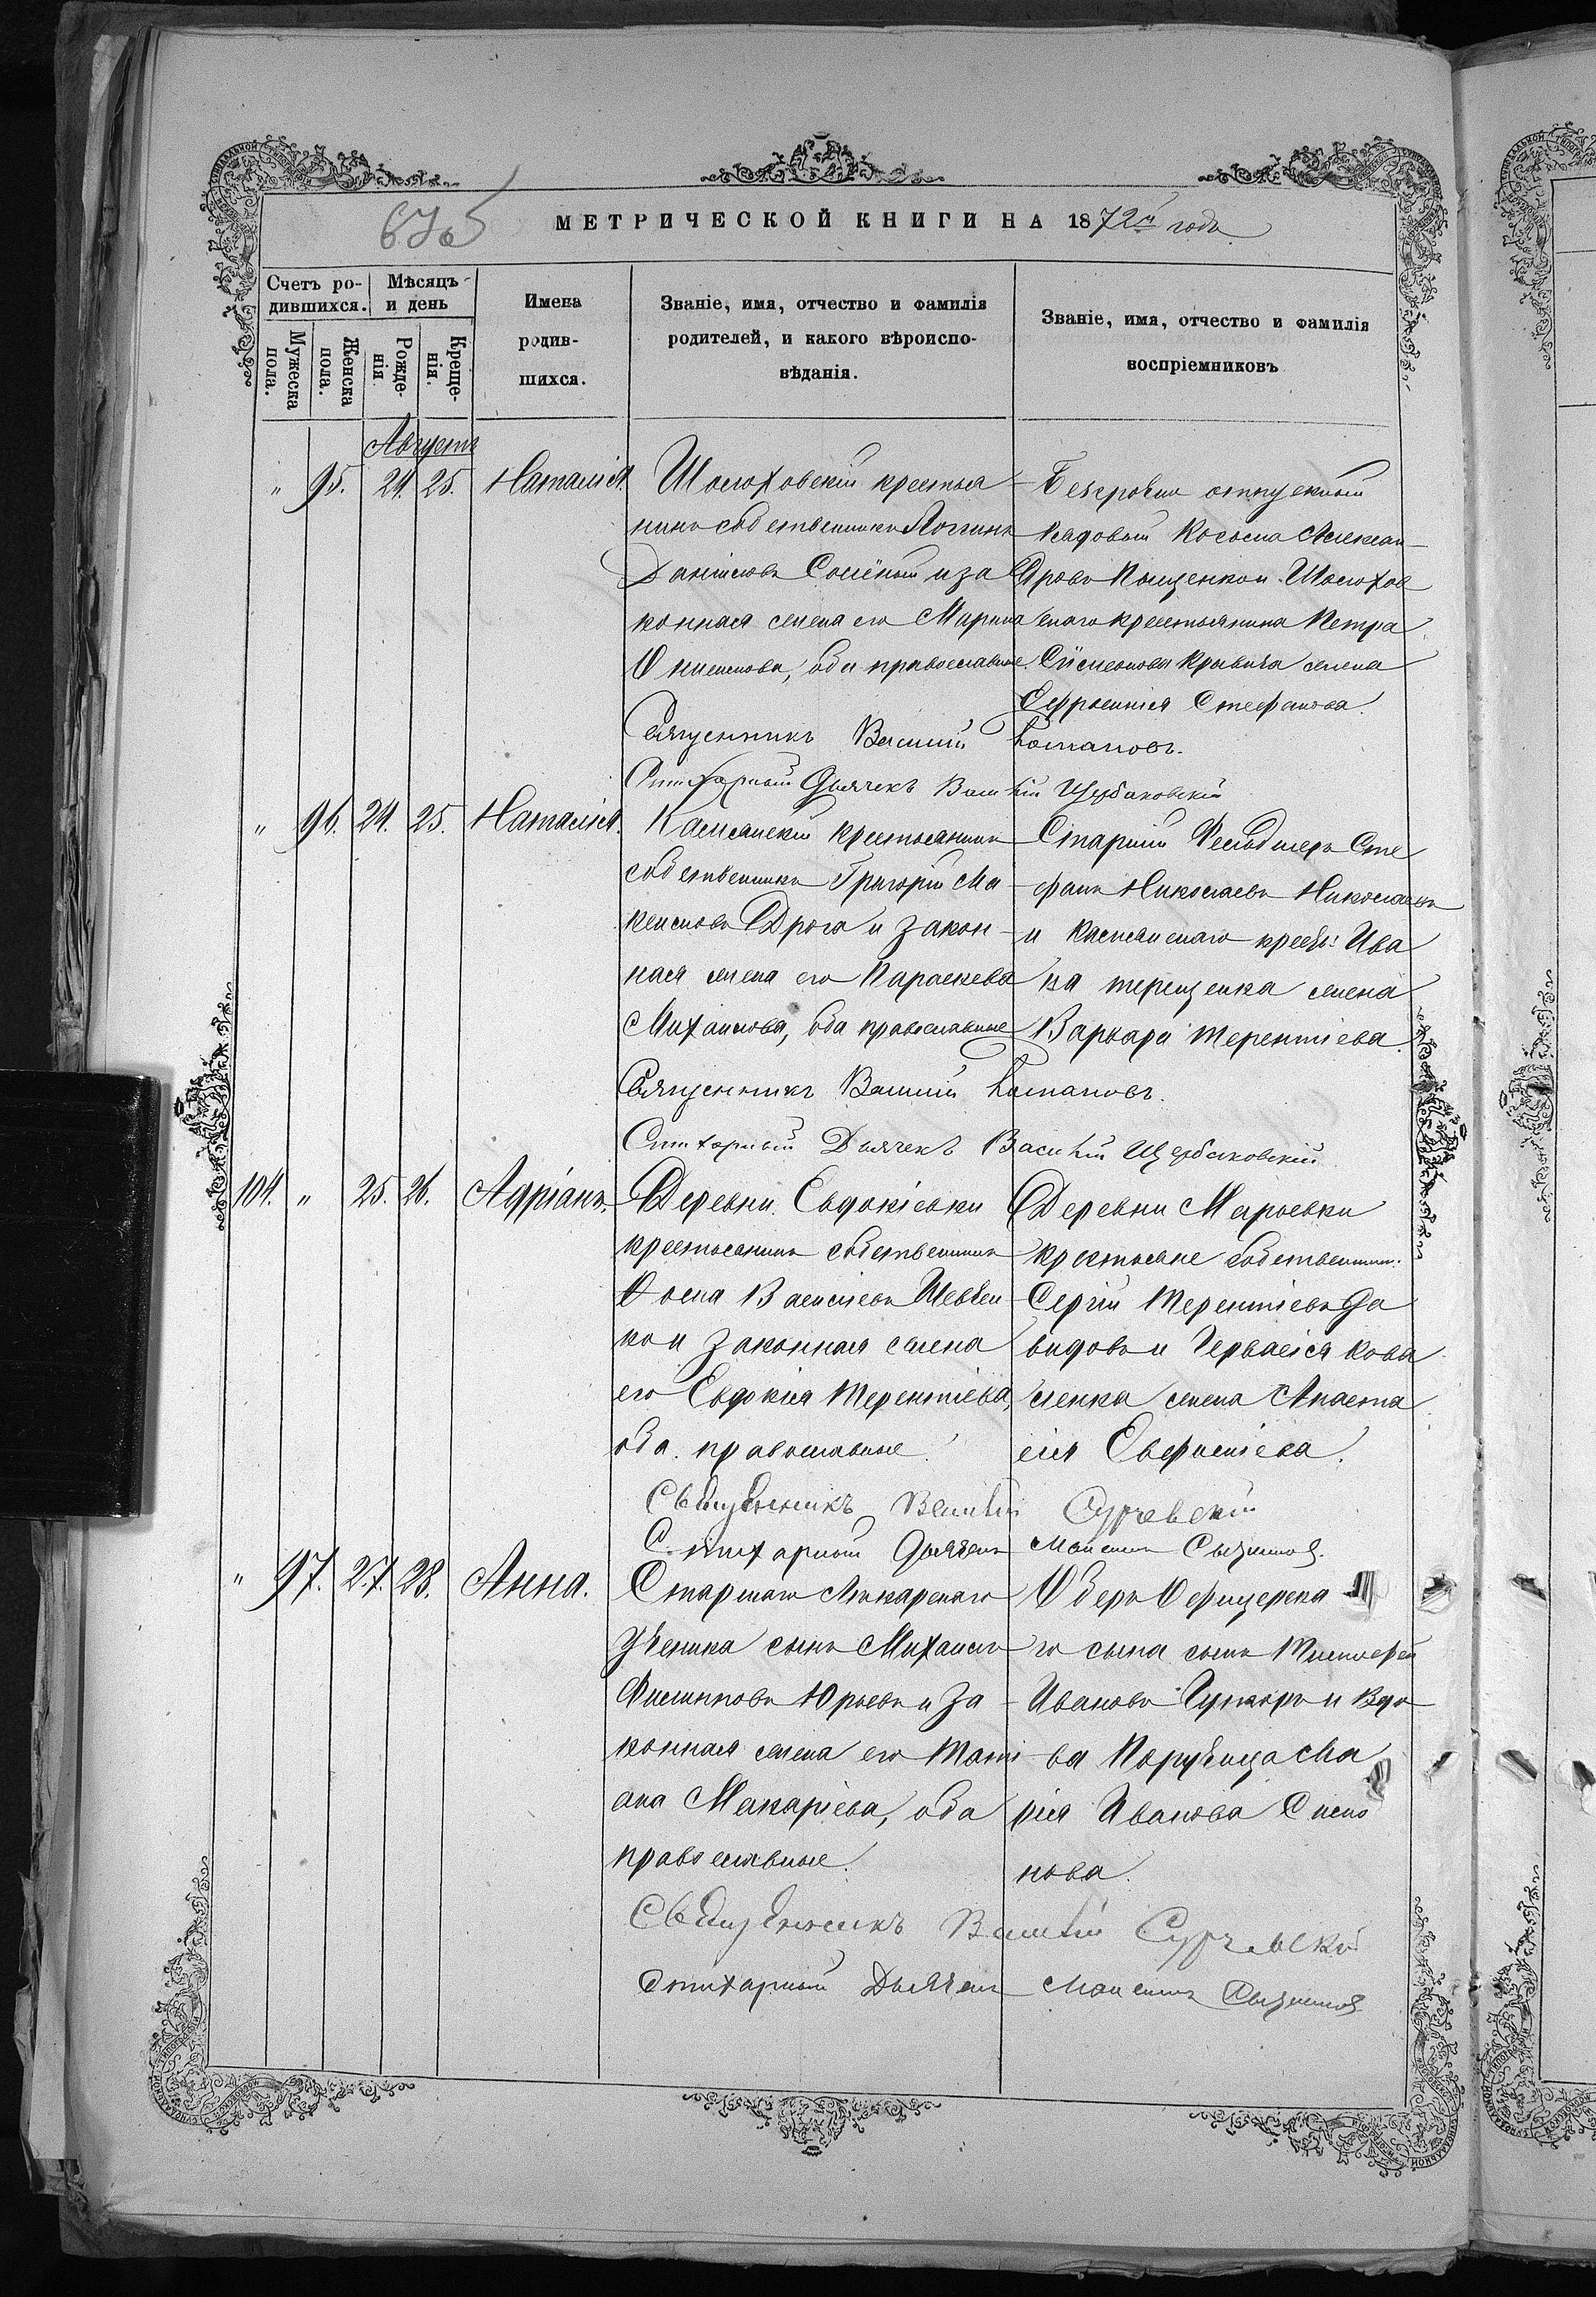 МЕТРИЧЕСКОЙ КНИГИ НА 1872й годъ
Счетъ ро-
дившихся.
Мѣсяцъ
и день
Мужеска
пола.
Женска
пола.
Рожде-
нія.
Креще-
нія.
Имена
родив-
шихся.
Званіе, имя, отчество и фамилія
родителей, и какого вѣроиспо-
вѣданія.
Званіе, имя, отчество и фамилія
воспріемниковъ
Августъ
" 95. 24. 25. Наталія.
крестья
нинъ собственникъ Логинъ
Даніиловъ Солёный и за
конная жена его Марина
Онисимова, оба православные.
отпускный
рядовый Косьма Алексан
дровъ
крестьянина Петра
жена
Ефросинія Стефанова
Священникъ Василій Потаповъ.
Стихарный Дьячекъ Василій Щербаковскій
" 96. 24. 25. Наталія.
Каменскій крестьянинъ
собственникъ Григорій Ма
ксимовъ Дрога и закон
ная жена его Параскева
Михаилова, оба православные
Старшій Фельдшеръ Сте
фанъ Николаевъ Николаевъ
и Каменскаго Ива
на терещенка жена
Варвара терентіева.
Священникъ Василій Потаповъ.
Стихарный Дьячекъ Василій Щербаковскій
104. " 25. 26. Адріанъ.
Деревни Евдокіевки
крестьянинъ собственникъ
Фома Васильевъ Шевчен
ко и законная жена
его Евдокія Терентіева,
оба православные.
Деревни Марьевки
крестьяне собственники:
Сергій Терентіевъ Да
видовъ и Гервасія кова
ленка жена Анаста
сія Евфиміева.
Священникъ Василій
Стихарный Дьячекъ Моисей
" 97. 27. 28. Анна.
Старшаго Лѣкарскаго
ученика сынъ Михаилъ
Филипповъ Юрьевъ и за
конная жена его Тати
ана Макаріева, оба
православные.
Оберъ Офицерска
го сына сынъ Тимофей
Ивановъ и Вдо
ва Поручица Ма
рія Иванова Симо
нова.
Священникъ Василій
Стихарный Дьячекъ Моисей